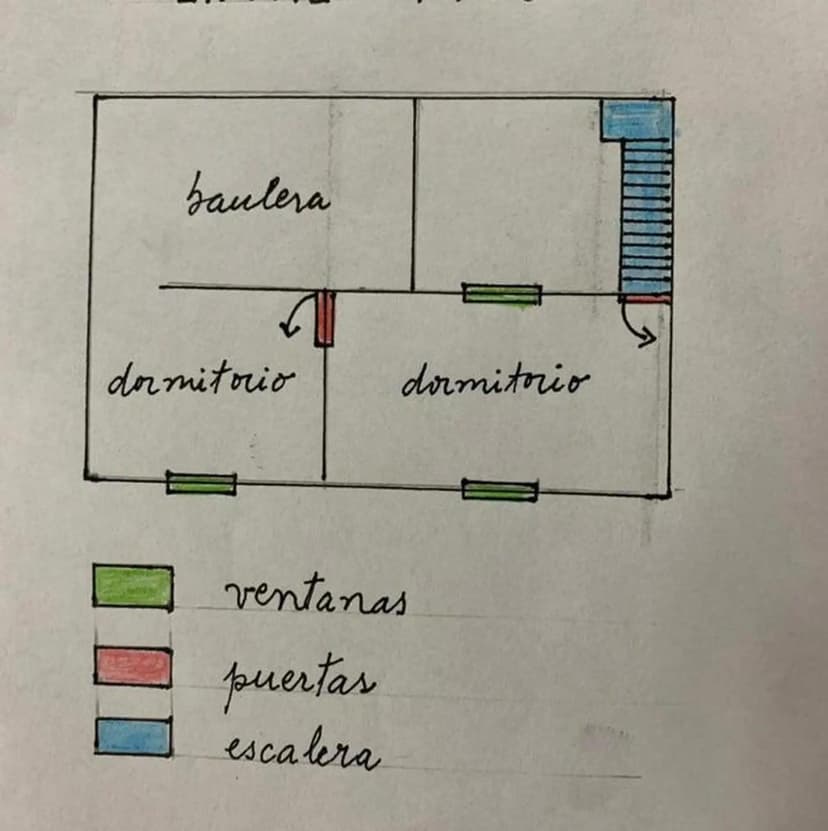 baulera
dormitorio dormitorio
ventanas
puertas
escalera